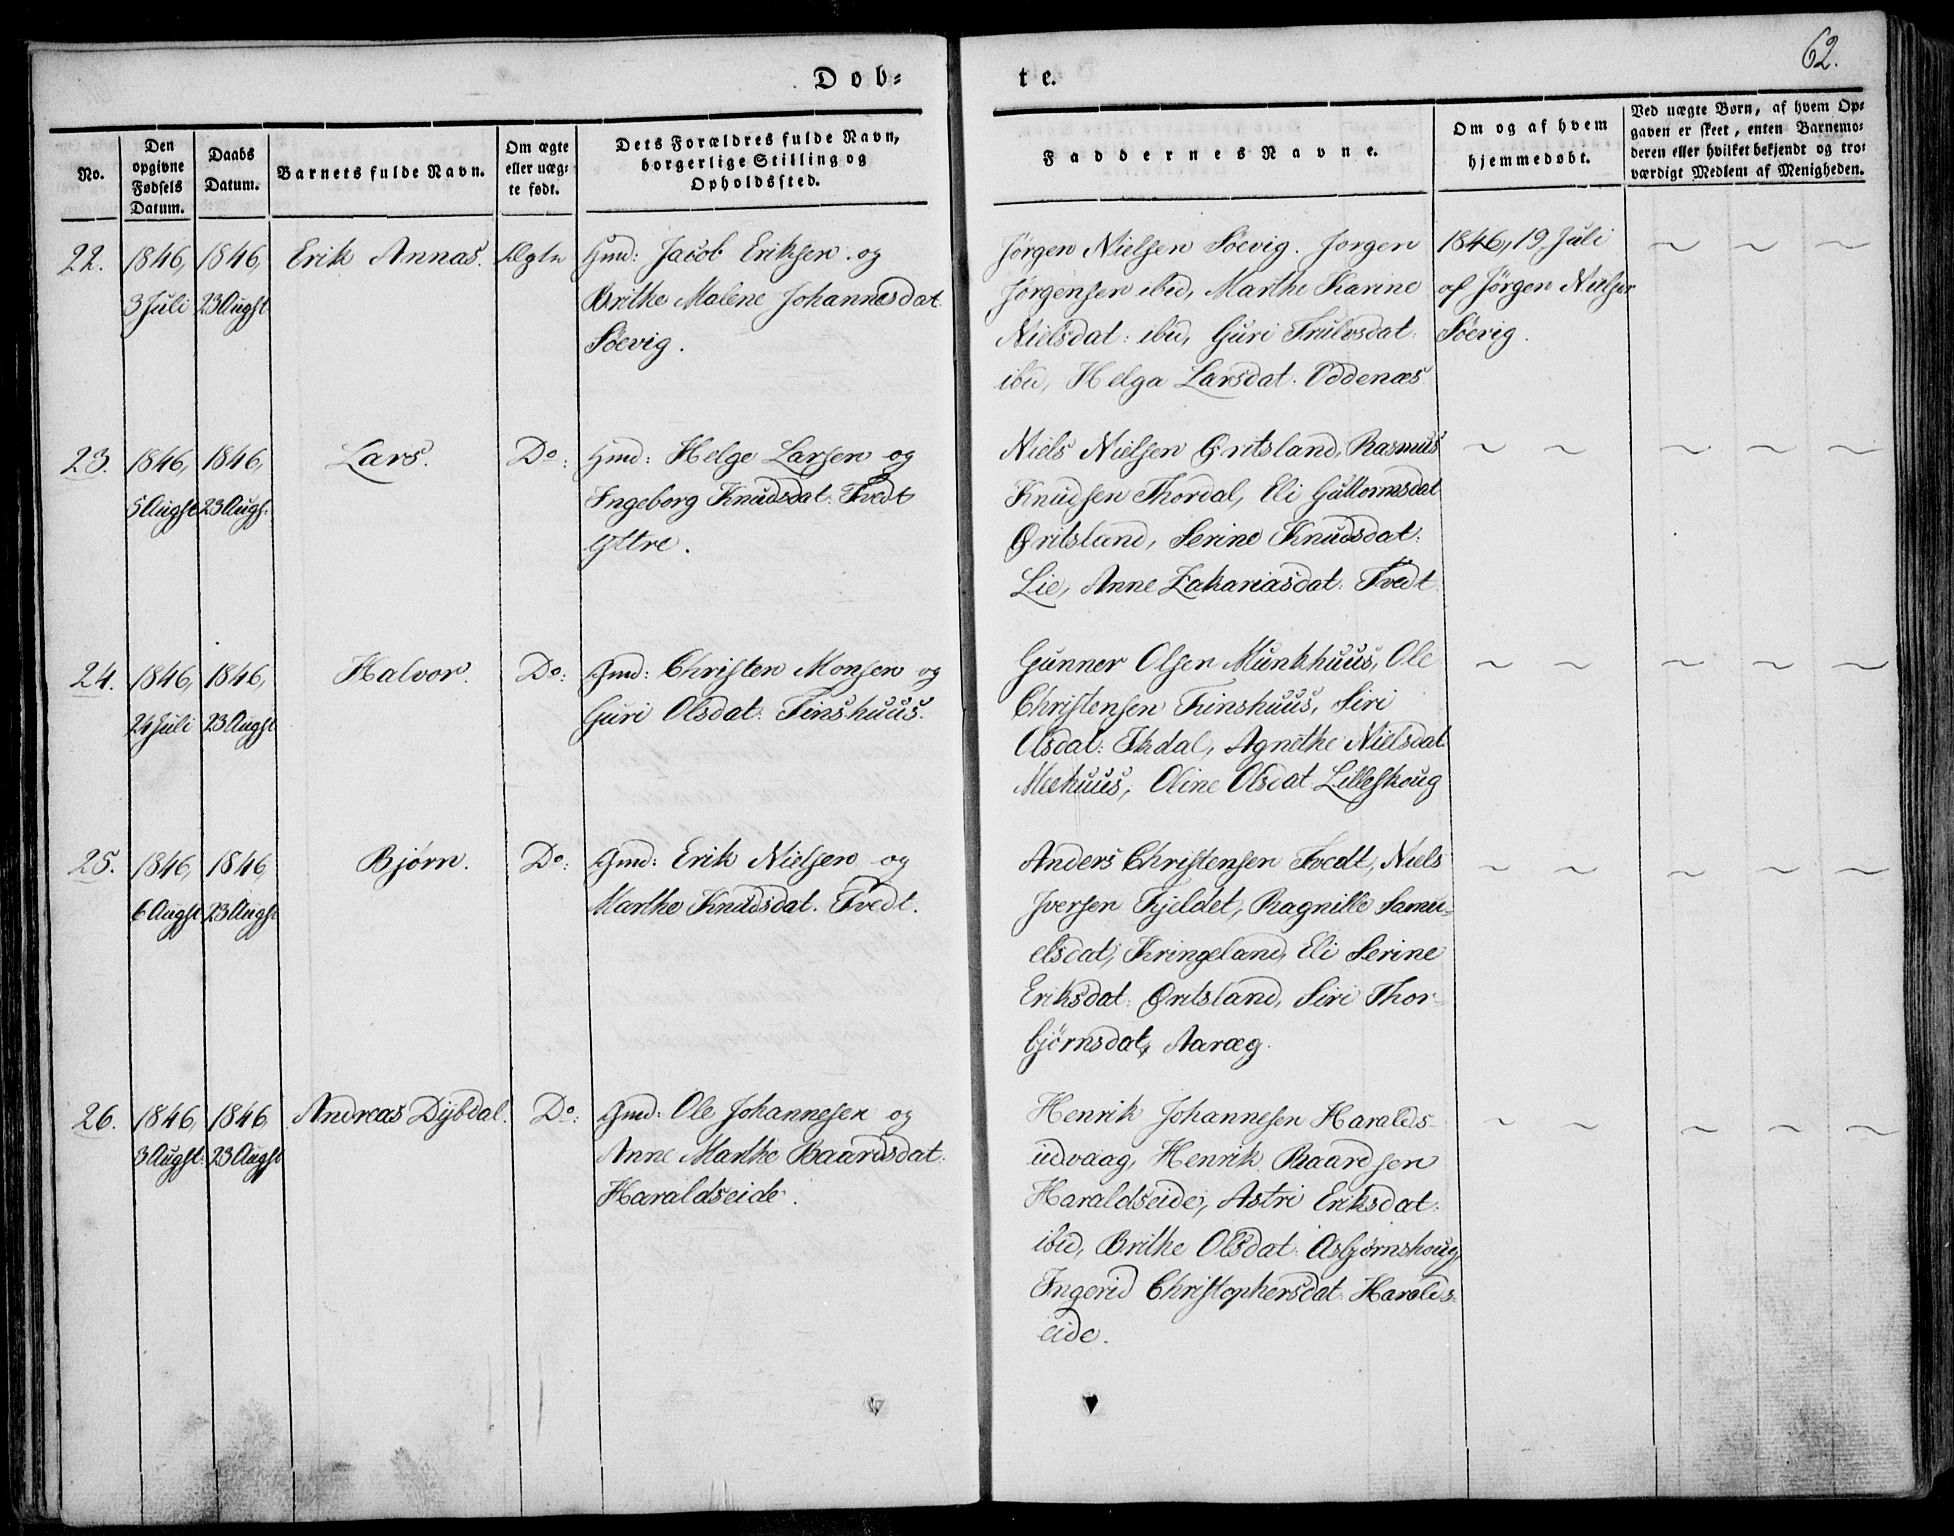 62.
Døb-
te.
No.
Den
opgivne
Fødsels
Datum.
Daabs
Datum.
Barnets fulde Navn.
Om ægte
eller uæg-
te født.
Dets Forældres fulde Navn,
borgerlige Stilling og
Opholdssted.
Faddernes Navne.
Om og af hvem
hjemmedøbt.
Ved uægte Børn, af hvem Op-
gaven er skeet, enten Barnemo-
deren eller hvilket bekjendt og tro-
værdigt Medlem af Menigheden.
22.
1846,
3 Juli
1846,
23 Augst
Erik Annas.
Ægte
Gmd: Jacob Eriksen og
Brithe Malene Johannesdat.
Søevig.
Jørgen Nielsen Søevig. Jørgen
Jørgensen ibid, Marthe Karine
Nielsdat: ibid, Guri Trulvsdat.
ibid, Helga Larsdat. Oddenæs
1846, 19 Juli
af Jørgen Nielsen
Søevig.
23.
1846,
5 Augst
1846,
23 Augst.
Lars.
Do:
Gmd: Helge Larsen og
Ingeborg Knudsdat. Tvedt
Yttre.
Niels Nielsen Øritsland, Rasmus
Knudsen Thordal, Eli Guttormsdat
Øritsland, Serine Knudsdat:
Lie, Anne Zakariasdat. Tvedt
24.
1846,
24 Juli
1846,
23 Augst
Halvor.
Do:
Gmd: Christen Monsen og
Guri Olsdat. Finshuus.
Gunner Olsen Munkhuus, Ole
Christensen Finshuus, Siri
Olsdat: Ekdal, Agnethe Nielsdat.
Meehuus, Oline Olsdat Lilleskoug
25.
1846,
6 Augst
1846,
23 Augst
Bjørn.
Do:
Gmd: Erik Nielsen og
Marthe Knudsdat. Tvedt.
Anders Christensen Tvedt, Niels
Iversen Fjeldet, Ragnille Samu-
elsdat, Kringeland, Eli Serine
Eriksdat: Øritsland, Siri Thor-
bjørnsdat, Aaræg.
26.
1846,
3 Augst.
1846,
23 Augst
Andreas Dybdal.
Do:
Gmd: Ole Johannesen og
Anne Marthe Baardsdat.
Haraldseide.
Henrik Johannesen Haralds-
udvaag, Henrik Baardsen
Haraldseide, Astri Eriksdat.
ibid, Brithe Olsdat. Asbjørnshoug,
Ingerid Christophersdat. Haralds-
eide.